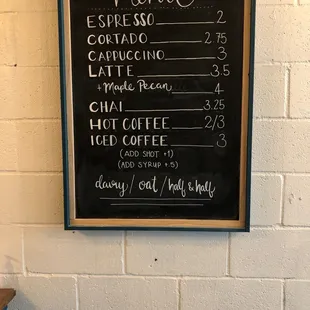 Menu
ESPRESSO 2
CORTADO 2.75
CAPPUCCINO 3
LATTE 3.5
+ Maple Pecan 4
CHAI 3.25
HOT COFFEE 2/3
ICED COFFEE 3
(ADD SHOT +1)
(ADD SYRUP +.5)
dairy / oat / half & half